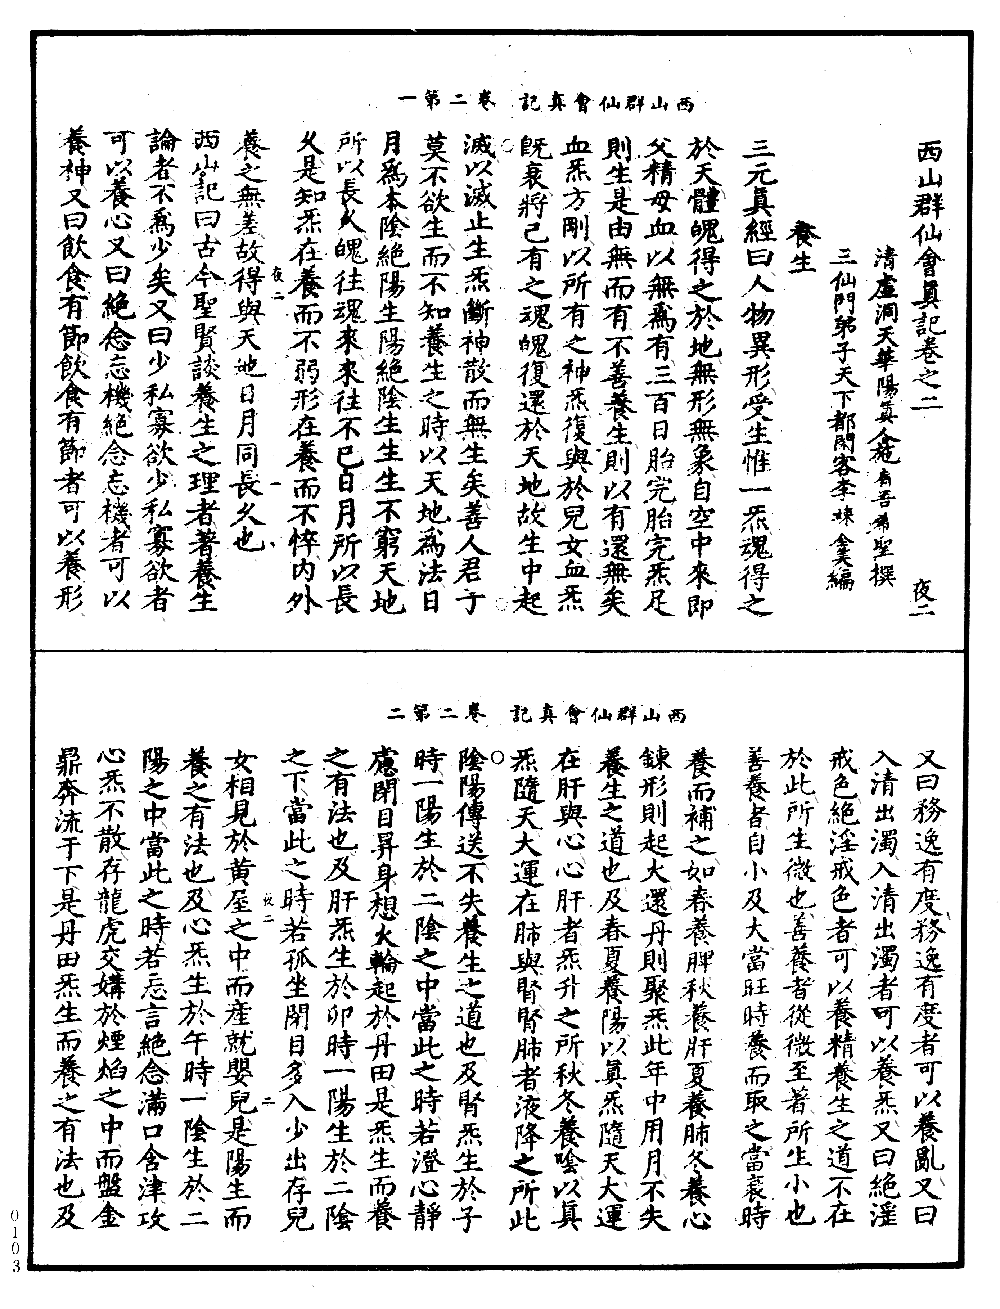 西山群仙會真記　卷二第一
西山群仙會眞記卷之二　夜二
清虛洞天華陽眞人施肩吾希聖撰
三仙門弟子天下都閑客李竦全美編
養生
三元眞經曰人物異形受生惟一炁魂得之
於天體魄得之於地無形無象自空中來即
父精母血以無爲有三百日胎完胎完炁足
則生是由無而有不善養生則以有還無矣
血炁方剛以所有之神炁復與於兒女血炁
旣衰將已有之魂魄復還於天地故生中起
滅以滅止生炁斷神散而無生矣善人君子
莫不欲生而不知養生之時以天地爲法日
月爲本陰絕陽生陽絕陰生生生不窮天地
所以長久魄往魂來來往不已日月所以長
久是知炁在養而不弱形在養而不悴內外
養之無差故得與天地日月同長久也
夜二　一
西山記曰古今聖賢談養生之理者著養生
論者不爲少矣又曰少私寡欲少私寡欲者
可以養心又曰絕念忘機絕念忘機者可以
養神又曰飲食有節飲食有節者可以養形
西山群仙會真記　卷二第二
又曰務逸有度務逸有度者可以養亂又曰
入清出濁入清出濁者可以養炁又曰絕淫
戒色絕淫戒色者可以養精養生之道不在
於此所生微也善養者從微至著所生小也
善養者自小及大當旺時養而取之當衰時
養而補之如春養脾秋養肝夏養肺冬養心
鍊形則起火還丹則聚炁此年中用月不失
養生之道也及春夏養陽以眞炁隨天大運
在肝與心心肝者炁升之所秋冬養陰以眞
炁隨天大運在肺與腎腎肺者液降之所此
陰陽傳送不失養生之道也及腎炁生於子
時一陽生於二陰之中當此之時若澄心靜
慮閉目昇身想火輪起於丹田是炁生而養
之有法也及肝炁生於卯時一陽生於二陰
之下當此之時若孤坐閉目多入少出存兒
夜二　二
女相見於黃屋之中而產就嬰兒是陽生而
養之有法也及心炁生於午時一陰生於二
陽之中當此之時若忘言絕念滿口含津攻
心炁不散存龍虎交媾於煙焰之中而盤金
鼎奔流于下是丹田炁生而養之有法也及
0103